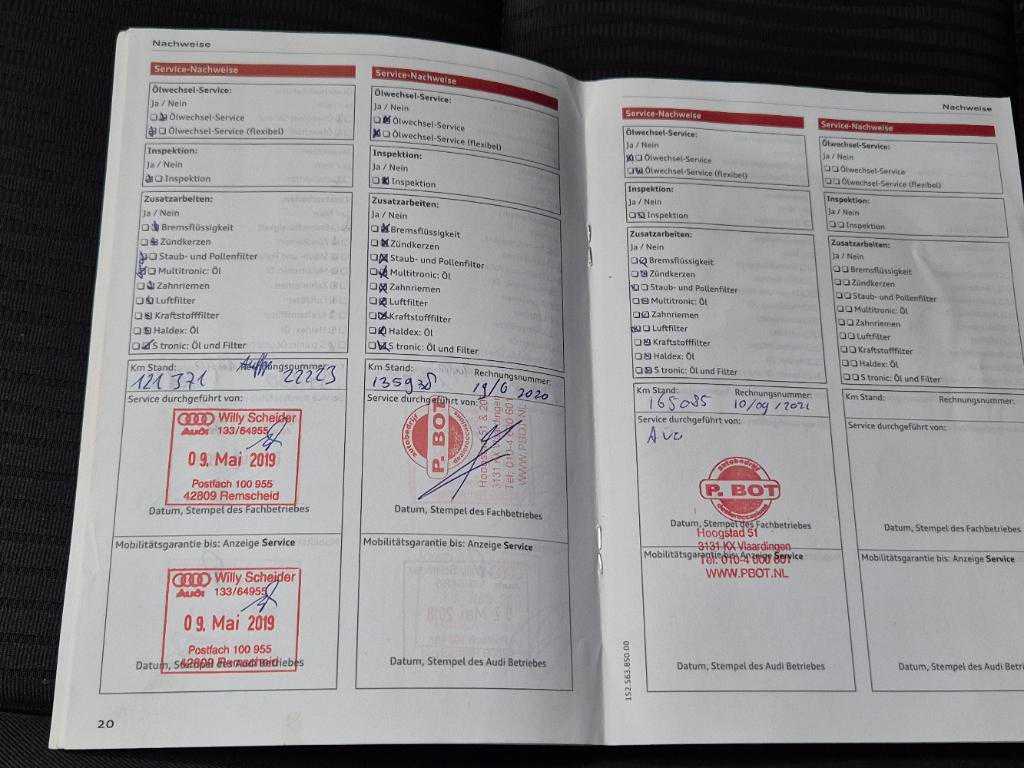 Nachweise
Service-Nachweise
Ölwechsel-Service:
Ja / Nein
Ölwechsel-Service
Ölwechsel-Service (flexibel)
Inspektion:
Ja / Nein
Inspektion
Zusatzarbeiten:
Ja / Nein
Bremsflüssigkeit
Zündkerzen
Staub- und Pollenfilter
Multitronic: Öl
Zahnriemen
Luftfilter
Kraftstofffilter
Haldex: Öl
S tronic: Öl und Filter
Km Stand: Rechnungsnummer:
121 371 22223
Service durchgeführt von:
Willy Scheider
Audi 133/64955
09. Mai 2019
Postfach 100 955
42809 Remscheid
Datum, Stempel des Fachbetriebes
Mobilitätsgarantie bis: Anzeige Service
Willy Scheider
Audi 133/64955
09. Mai 2019
Postfach 100 955
42809 Remscheid
Datum, Stempel des Audi Betriebes
20
Service-Nachweise
Ölwechsel-Service:
Ja / Nein
Ölwechsel-Service
Ölwechsel-Service (flexibel)
Inspektion:
Ja / Nein
Inspektion
Zusatzarbeiten:
Ja / Nein
Bremsflüssigkeit
Zündkerzen
Staub- und Pollenfilter
Multitronic: Öl
Zahnriemen
Luftfilter
Kraftstofffilter
Haldex: Öl
S tronic: Öl und Filter
Km Stand: Rechnungsnummer:
19/6 2020
Service durchgeführt von:
autobedrijf
P. BOT
WWW.PBOT.NL
Datum, Stempel des Fachbetriebes
Mobilitätsgarantie bis: Anzeige Service
Datum, Stempel des Audi Betriebes
Nachweise
Service-Nachweise
Ölwechsel-Service:
Ja / Nein
Ölwechsel-Service
Ölwechsel-Service (flexibel)
Inspektion:
Ja / Nein
Inspektion
Zusatzarbeiten:
Ja / Nein
Bremsflüssigkeit
Zündkerzen
Staub- und Pollenfilter
Multitronic: Öl
Zahnriemen
Luftfilter
Kraftstofffilter
Haldex: Öl
S tronic: Öl und Filter
Km Stand: Rechnungsnummer:
165085 10/09/2021
Service durchgeführt von:
autobedrijf
P. BOT
Datum, Stempel des Fachbetriebes
Hoogstad 51
3131 KX Vlaardingen
Tel. 010-4 600 601
WWW.PBOT.NL
Mobilitätsgarantie bis: Anzeige Service
Datum, Stempel des Audi Betriebes
152.563.850.00
Service-Nachweise
Ölwechsel-Service:
Ja / Nein
Ölwechsel-Service
Ölwechsel-Service (flexibel)
Inspektion:
Ja / Nein
Inspektion
Zusatzarbeiten:
Ja / Nein
Bremsflüssigkeit
Zündkerzen
Staub- und Pollenfilter
Multitronic: Öl
Zahnriemen
Luftfilter
Kraftstofffilter
Haldex: Öl
S tronic: Öl und Filter
Km Stand: Rechnungsnummer:
Service durchgeführt von:
Datum, Stempel des Fachbetriebes
Mobilitätsgarantie bis: Anzeige Service
Datum, Stempel des Audi